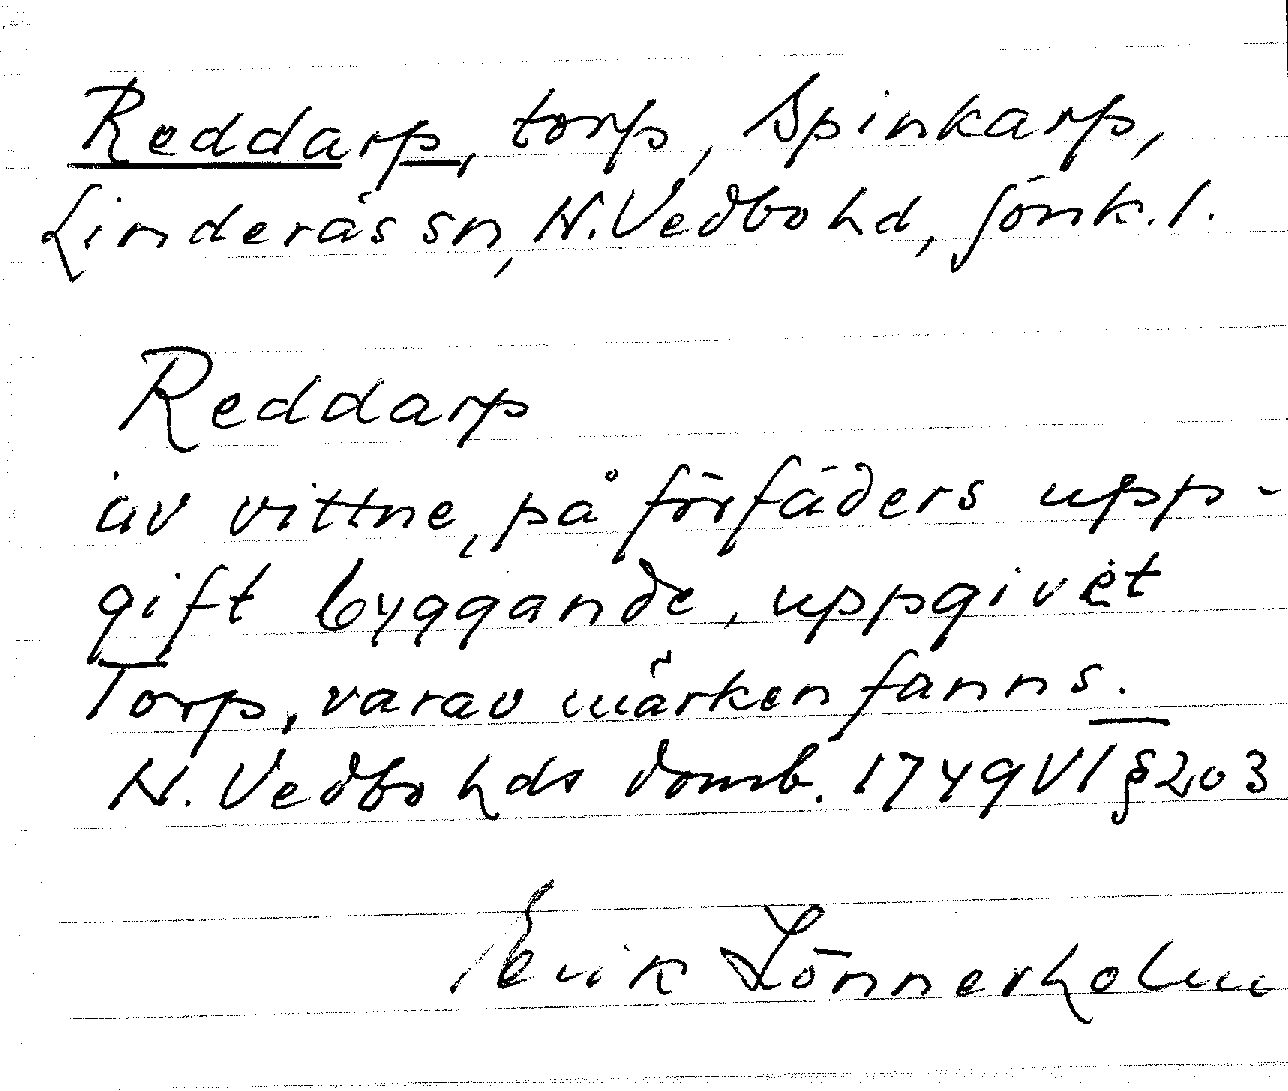 Reddarp, torp, Spinkarp,
Linderås sn, N. Vedbo hd, Jönk. l.
Reddarp
av vittne, på förfäders upp-
gift byggande, uppgivet
Torp, varav märken fanns.
N. Vedbo hds domb. 1749 VI § 203
Erik Lönnerholm